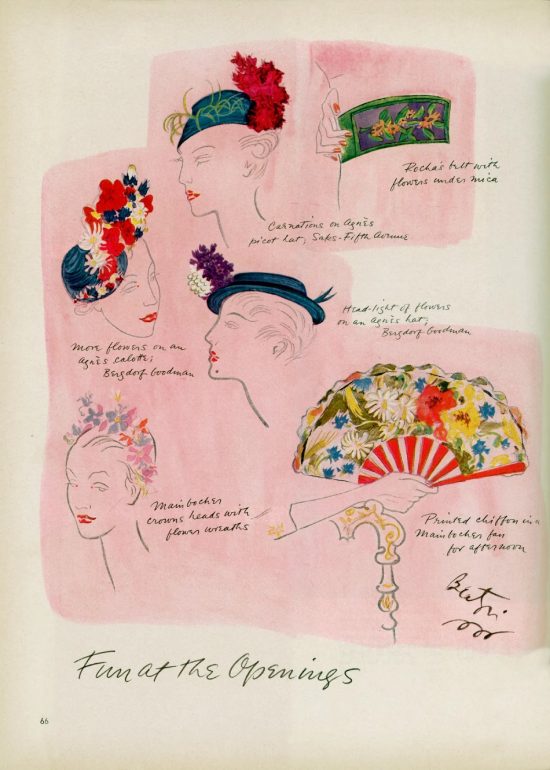 Rocha's belt with
flowers under mica
Carnations on Agnès
picot hat; Saks-Fifth Avenue
Head-light of flowers
on an Agnès hat;
Bergdorf Goodman
more flowers on an
Agnès calotte;
Bergdorf Goodman
Mainbocher
crowns heads with
flower wreaths
Printed chiffon in a
Mainbocher fan
for afternoon
Fun at the Openings
66